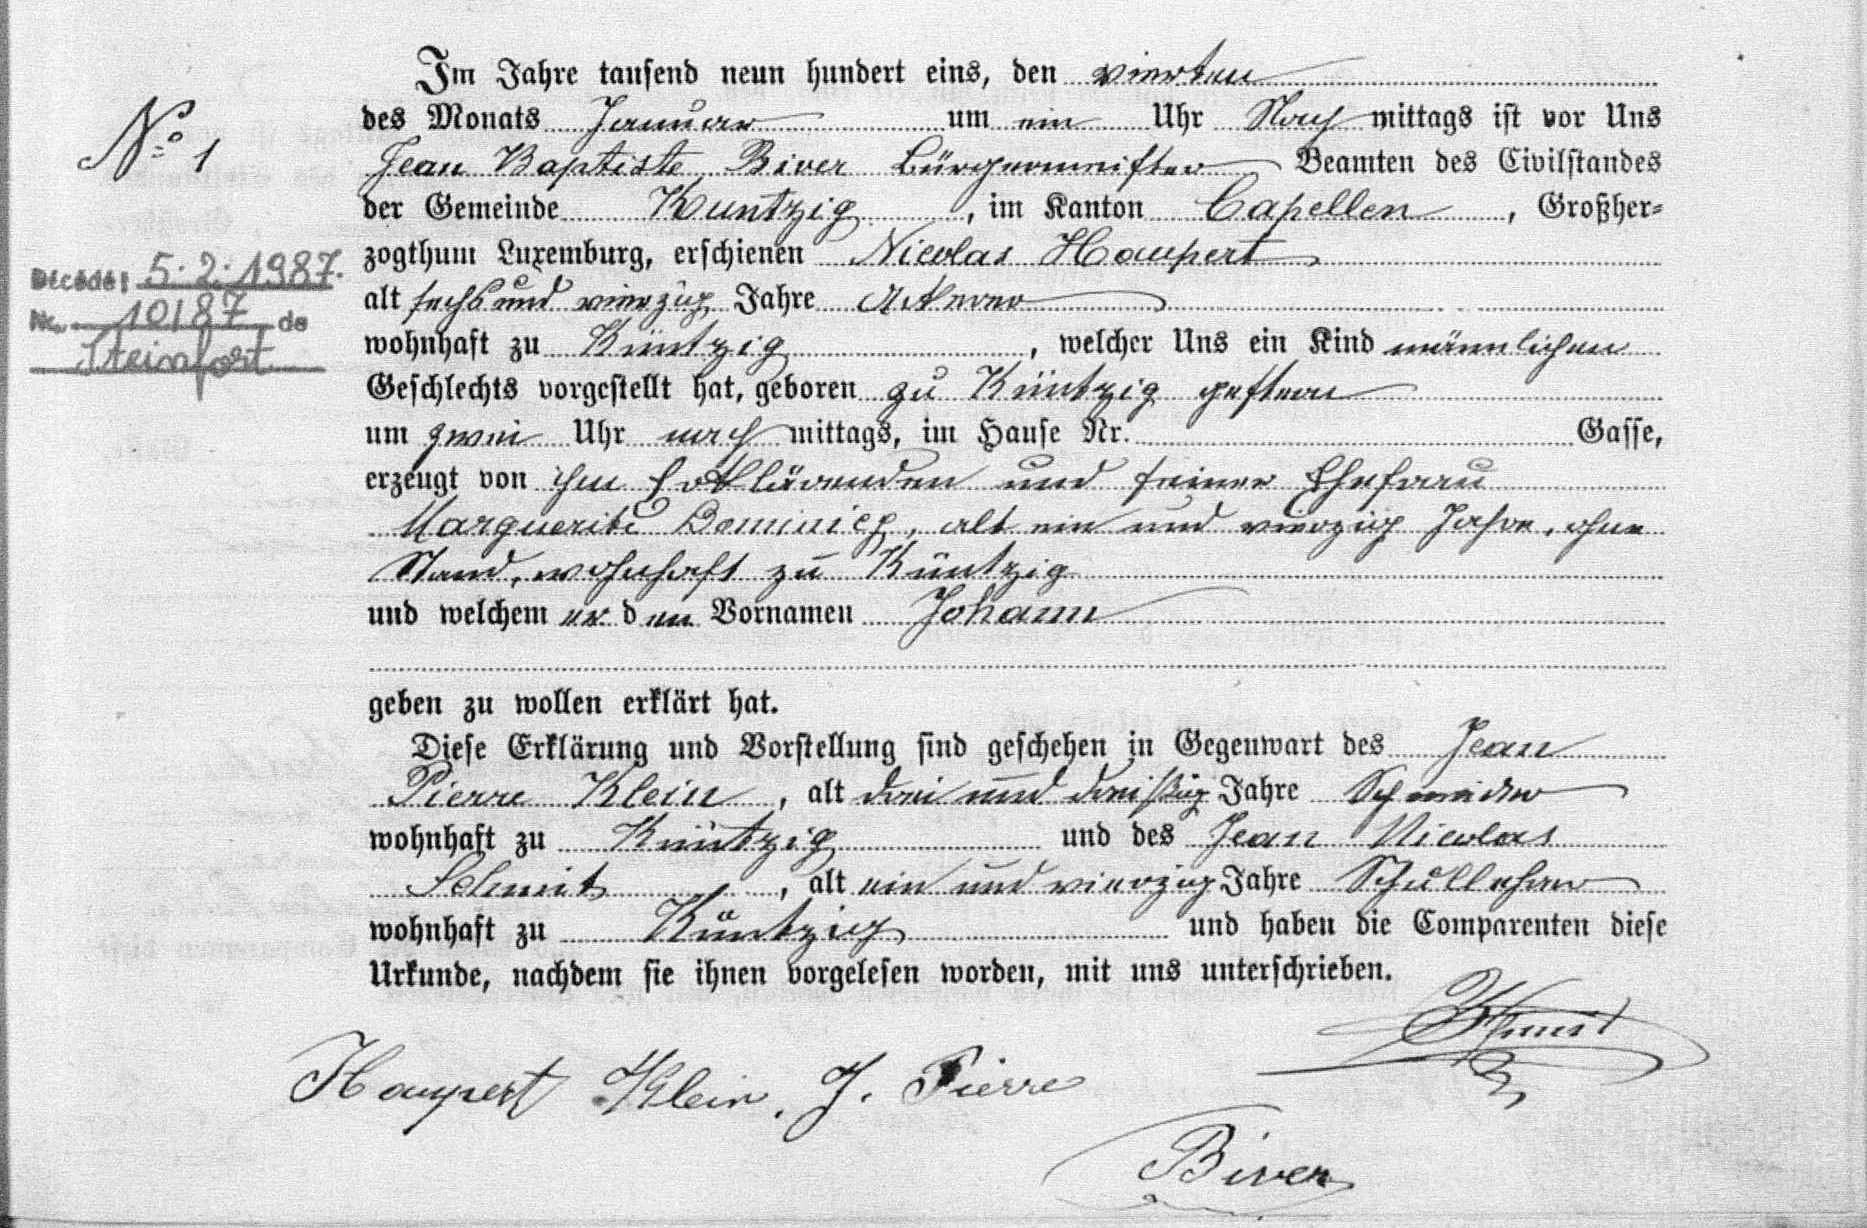 Im Jahre tausend neun hundert eins, den vierten
Nº 1
des Monats Januar um ein Uhr Nach mittags ist vor Uns
Jean Baptiste Biver Bürgermeister Beamten des Civilstandes
der Gemeinde Kuntzig, im Kanton Capellen, Großher=
zogthum Luxemburg, erschienen Nicolas Haupert
Décédé: 5.2.1987.
alt sechs und vierzig Jahre Ackerer
No. 10/87 de
wohnhaft zu Küntzig, welcher Uns ein Kind männlichen
Steinfort
Geschlechts vorgestellt hat, geboren zu Küntzig gestern
um zwei Uhr nach mittags, im Hause Nr. Gasse,
erzeugt von ihm Erklärenden und seiner Ehefrau
Marguerite, alt ein und vierzig Jahre, ohne
Stand, wohnhaft zu Küntzig
und welchem er den Vornamen Johann
geben zu wollen erklärt hat.
Diese Erklärung und Vorstellung sind geschehen in Gegenwart des Jean
Pierre Klein, alt drei und dreißig Jahre Schneider
wohnhaft zu Küntzig und des Jean Nicolas
Schmit, alt ein und vierzig Jahre Schullehrer
wohnhaft zu Küntzig und haben die Comparenten diese
Urkunde, nachdem sie ihnen vorgelesen worden, mit uns unterschrieben.
Schmit
Haupert Klein. J. Pierre
Biver